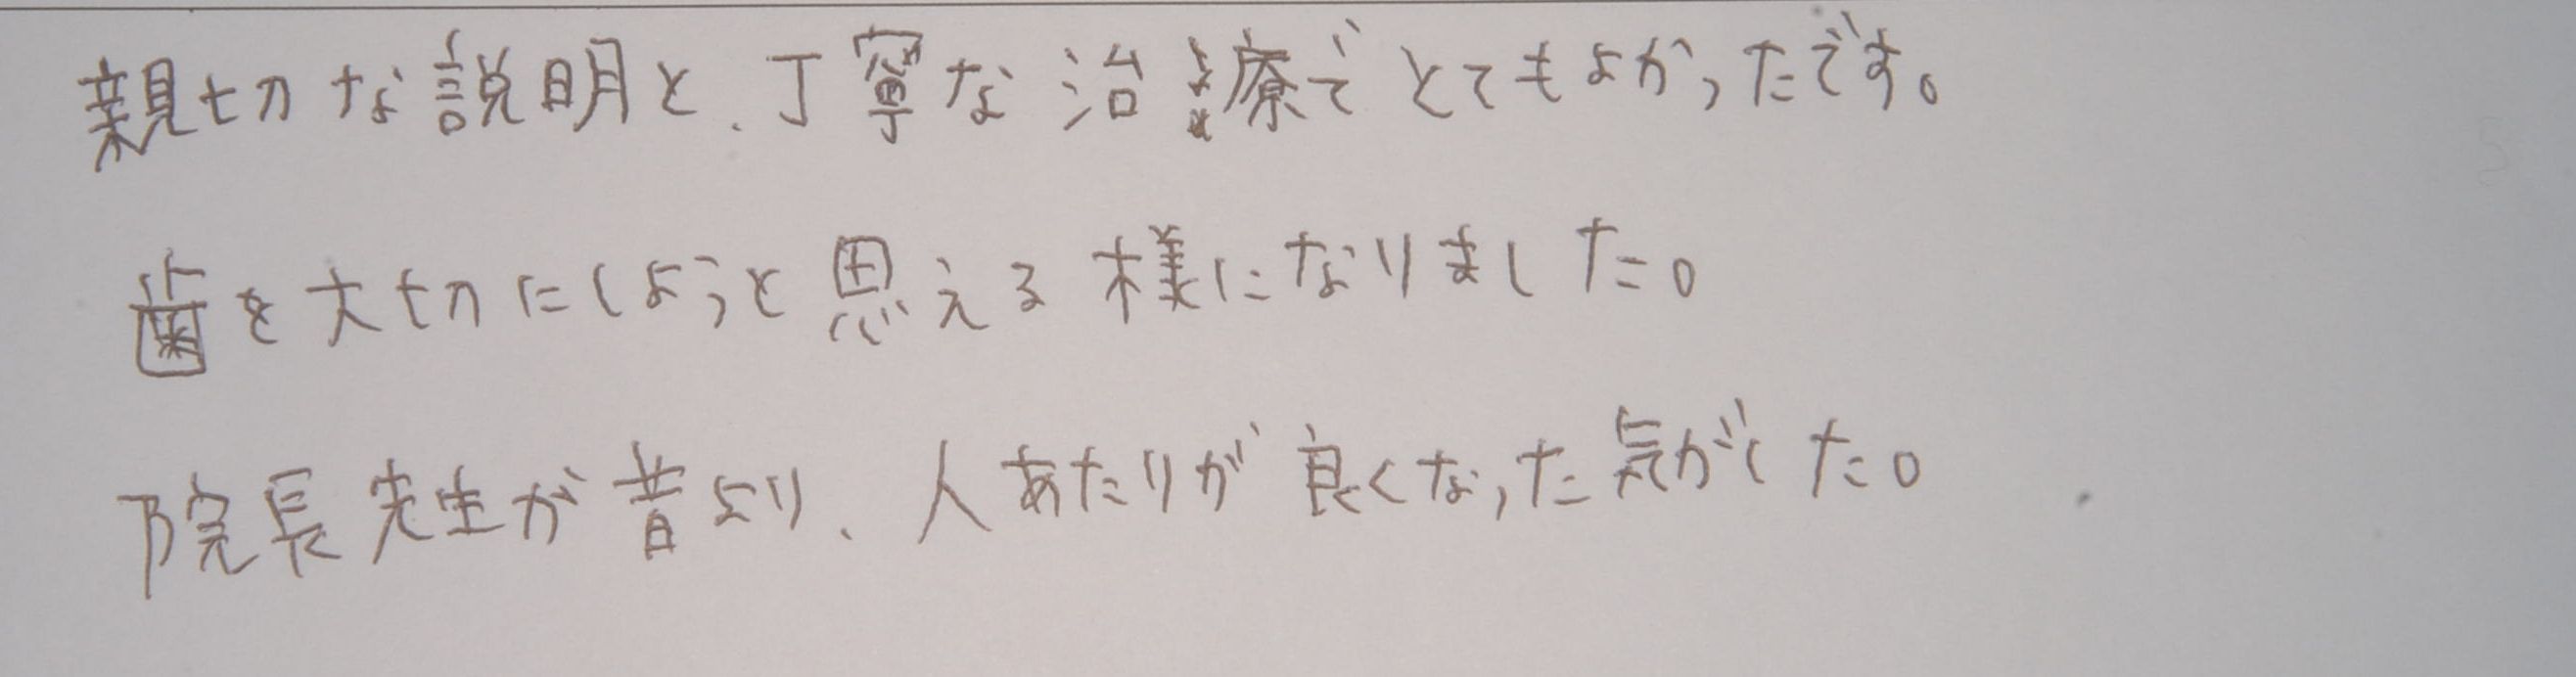 親切な説明と、丁寧な治療でとてもよかったです。
歯を大切にしようと思える様になりました。
院長先生が昔より、人あたりが良くなった気がした。